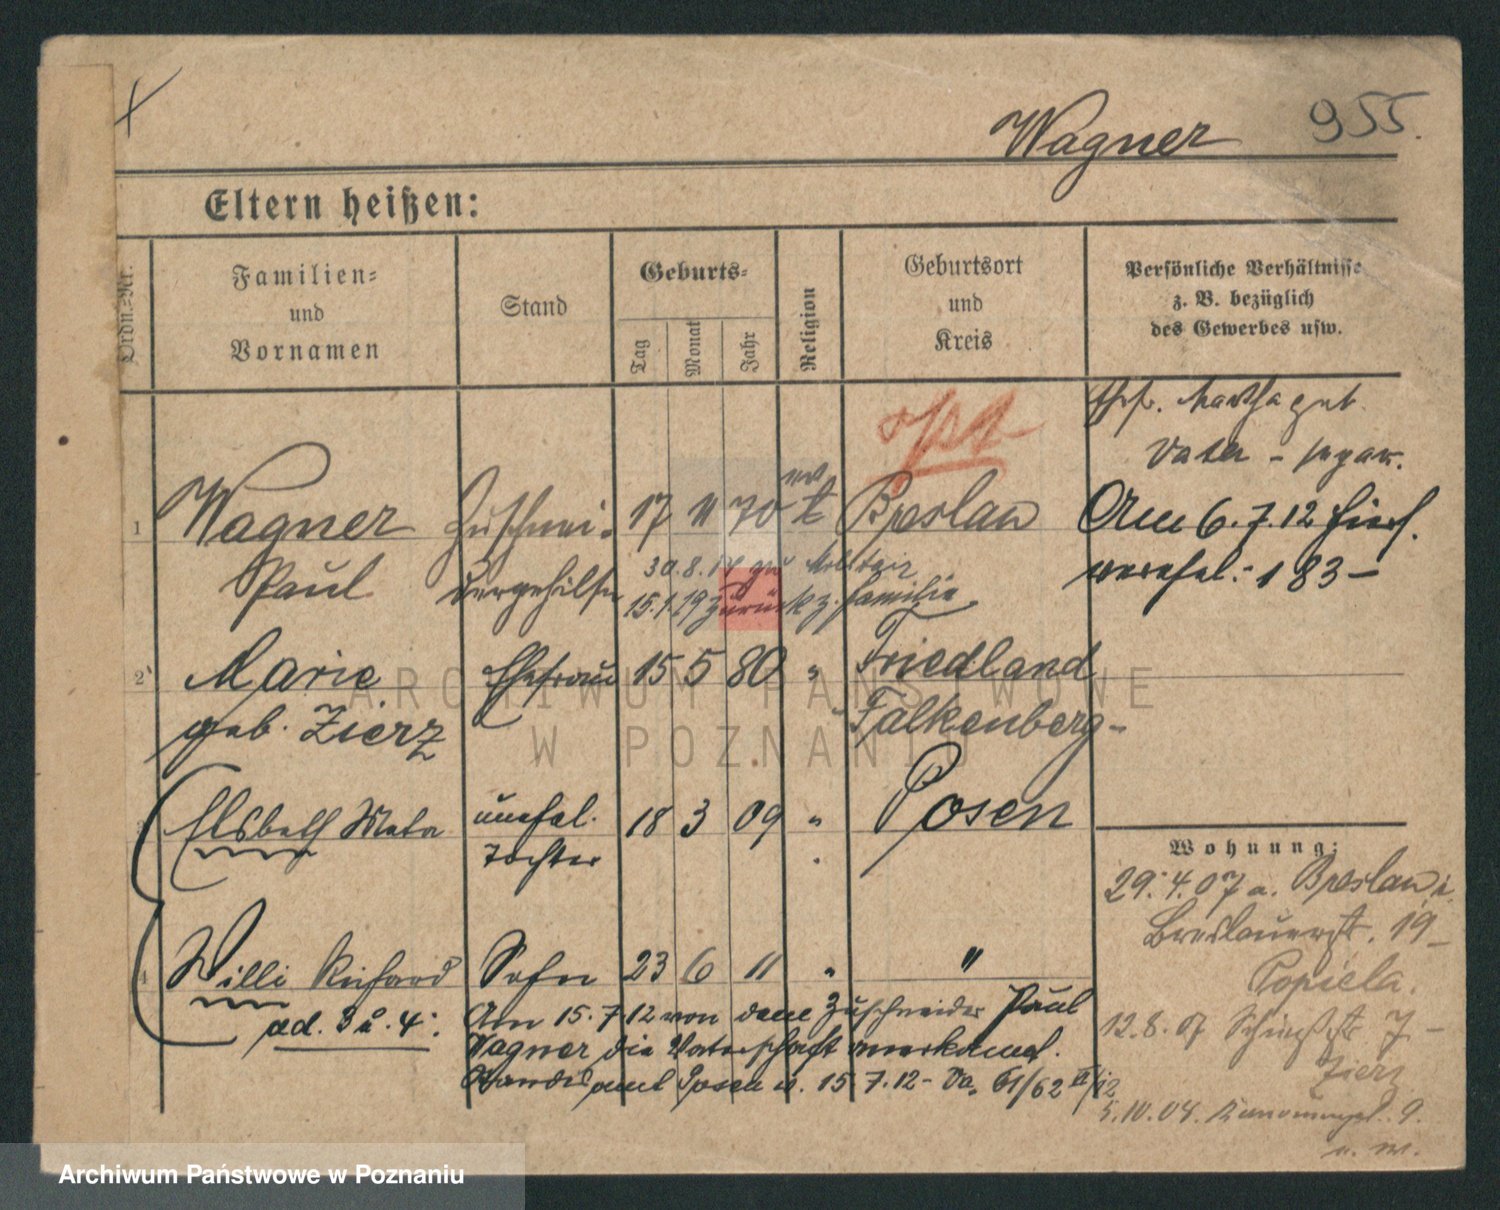 Wagner 955.
Eltern heißen:
Ordn.-Nr.
Familien-
und
Vornamen
Stand
Geburts-
Tag
Monat
Jahr
Religion
Geburtsort
und
Kreis
Persönliche Verhältnisse
z. B. bezüglich
des Gewerbes usw.
Vater
1 Wagner Zuschnei- 17 11 70 Breslau
Paul dergehilfe
Am 6.7.12 hier
verehel. 183
30.8.17 zu Militair
15.1.19 zurück z. Familie
2 Marie Ehefrau 15 5 80 " Friedland
geb. Zierz Falkenberg
3 Elsbeth Meta unehel. 18 3 09 " Posen
Tochter
4 Willi Richard Sohn 23 6 11 " "
ad. 3 u. 4:
Am 15.7.12 von dem Zuschneider Paul
Wagner die Vaterschaft anerkannt.
Standesamt Posen v. 15.7.12 - 61/62
Wohnung:
29.4.07 a. Breslau
Breslauerstr. 19
Popiela.
12.8.07 7
Zierz
5.10.09. 9.
ARCHIWUM PAŃSTWOWE
W POZNANIU
Archiwum Państwowe w Poznaniu